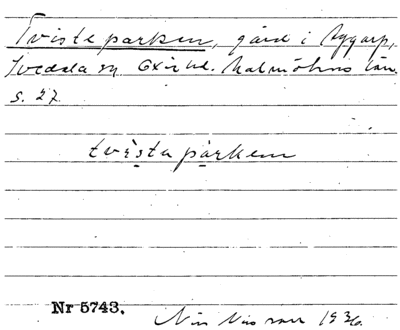 Tvisteparken, gård i Aggarp,
Svedala sn Oxie hd. Malmöhus län.
s. 27.
tvistaparken
Nr 5743.
Nils Nilsson 1936.